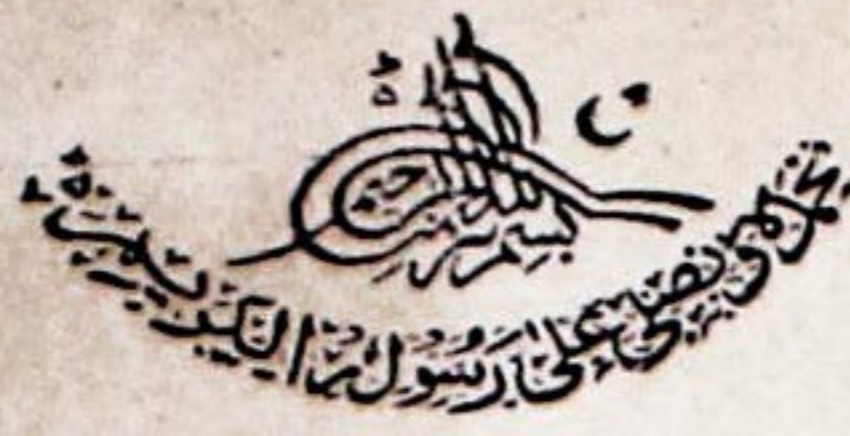 بسم الله الرحمن الرحیم
نحمدہ ونصلی علیٰ رسولہ الکریم